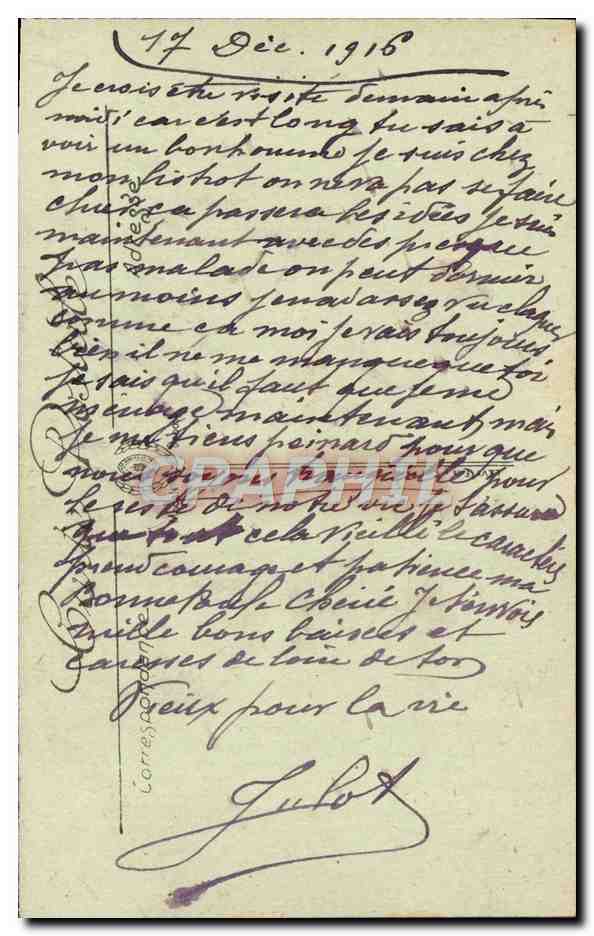 17 Déc. 1916
Je crois être visité demain après
midi car c'est long tu sais à
voir un bonhomme je suis chez
mon bistrot on ne va pas se faire
cher ça passera les idées je suis
maintenant avec des presque
pas malade on peut dormir
au moins j'en ai assez vu claquer
comme ça moi je vais toujours
bien il ne me manque que toi
je sais qu'il faut que je me
ménage maintenant mais
je me tiens peinard pour que
nous tranquille pour
le reste de notre vie je t'assure
que tout cela vieillit le caractère
prend courage et patience ma
bonne chérie Je t'envois
mille bons baisers et
caresses de loin de ton
Vieux pour la vie
Julot
Carte Postale
Correspondance
Adresse
CPAPHIL